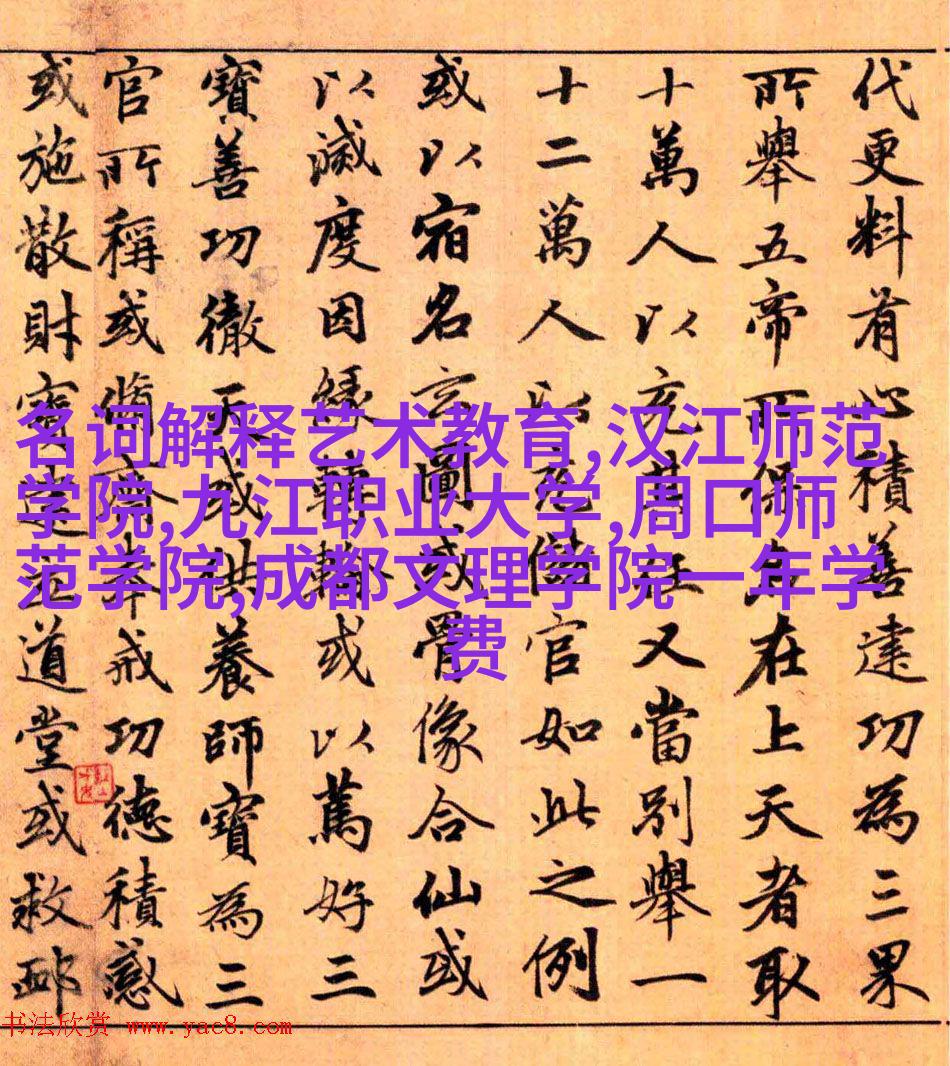 代更料有心積善建功為三果
所舉五帝所保在上天者取
十萬人以充其任又當別舉一
十二萬人以官如此之例
或以宿名玄圖或骨像合仙或
以滅度因緣轉輪或以篤好三
寶善功徹天或供養師寶為三
官所稱或脩齋奉戒功德積感
或施散財寶建立道堂或救卹
名词解释艺术教育,汉江师范
学院,九江职业大学,周口师
范学院,成都文理学院一年学
费
书法欣赏 www.yac8.com